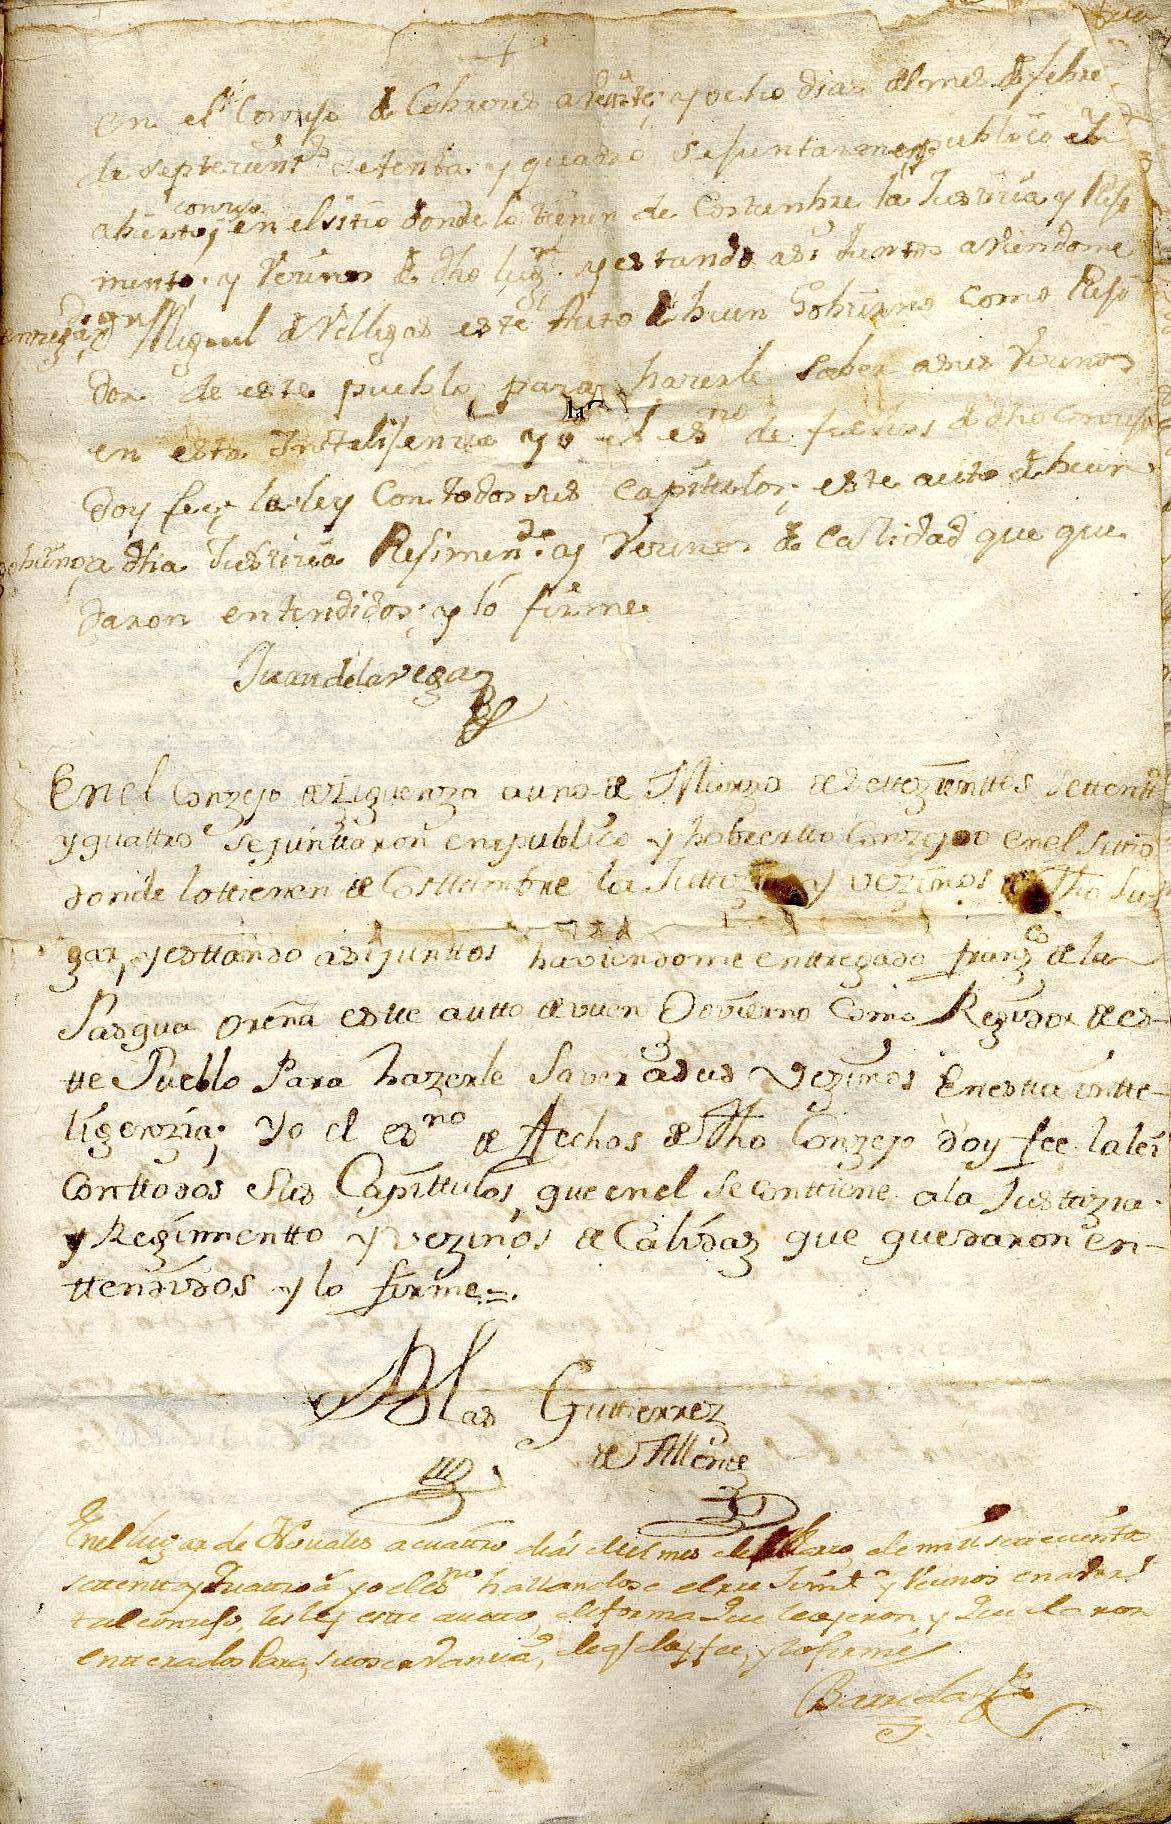 en el Consejo de Cobreces a veinte y ocho dias del mes de febre
de septecient.s setenta y quatro se juntaron en publico
abierto consejo en el sitio donde lo tienen de Costunbre la Justicia y Reji
miento y Vecinos de dho lug.r y estando asi Juntos aviendome
entregado Miguel de Villegas este Auto de buen Gobierno como Reji
dor de este pueblo para hacerle saber asus Vecinos
en esta Intelijencia yo el es.no de fechos de dho Consejo
doy fee; la ley Con todos sus Capitulos; este auto de buen
gobierno, a dha Justicia Rejimien.to y Vecinos de Calidad que que
daron entendidos; y lo firme
Juan de la vega
En el Conzejo de Ziguenza a uno de Marzo de settezienttos settentta
y quattro se junttaron en publico y habiertto Conzejo en el sittio
donde lo ttienen de Costtumbre la Justtizia y vezinos de dho Lu-
gar, y esttando asi junttos haviendome enttregado Franz.co de la
Pasqua Oreña estte autto de vuen Govierno Como Rezidor de es-
tte Pueblo Para hazerle Saver a sus Vezinos En estta intte-
lijenzia; Yo el es.no de Fechos de dho Conzejo doy fee la lei
Con ttodos Sus Capittulos, que en el se conttiene a la Justtizia
y Rezimientto y vezinos de Calidaz que quedaron en-
ttendidos y lo firme=.
Blas Guttierrez
de Allende
En el lugar de Novales a cuatro dias del mes de Marzo de mill settecientos
settenta y Quattro a.s yo el es.no hallandose el rre Jimt.o y Vecinos en
tal consejo, les ley este autto, de forma que le oyeron y quedaron
entterados Para, su oservancia, de q.e doy fee, y lo firme
Barreda